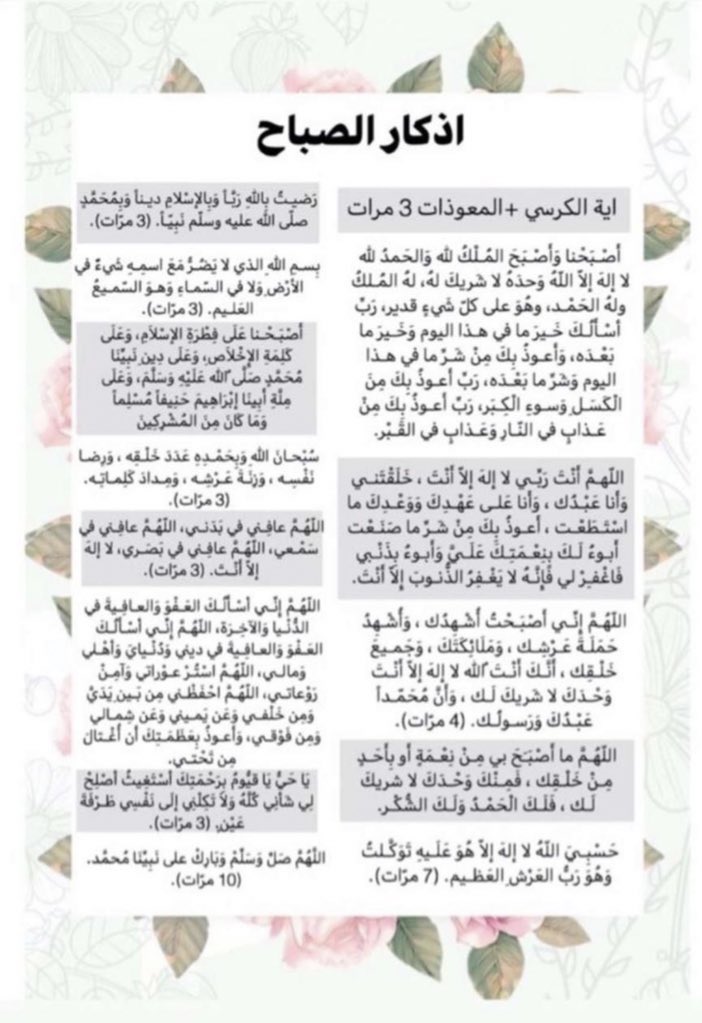 اذكار الصباح
اية الكرسي +المعوذات 3 مرات
أصْبَحْنا وَأصْبَحَ المُلْكُ لله وَالحَمدُ لله
لا إلهَ إلاّ اللّهُ وَحدَهُ لا شَريكَ لهُ، لهُ المُلكُ
ولهُ الحَمْد، وهُوَ على كلّ شَيءٍ قدير، رَبِّ
أسْألُكَ خَيرَ ما في هذا اليوم وَخَيرَ ما
بَعْدَه، وَأعوذُ بِكَ مِنْ شَرِّ ما في هذا
اليوم وَشَرِّ ما بَعْدَه، رَبِّ أعوذُ بِكَ مِنَ
الْكَسَلِ وَسوءِ الْكِبَر، رَبِّ أعوذُ بِكَ مِنْ
عَذابٍ في النّارِ وَعَذابٍ في القَبْر.
اللّهمَّ أنْتَ رَبِّي لا إلهَ إلاّ أنْتَ ، خَلَقْتَني
وَأنا عَبْدُك ، وَأنا عَلى عَهْدِكَ وَوَعْدِكَ ما
اسْتَطَعْت ، أعوذُ بِكَ مِنْ شَرِّ ما صَنَعْت
أبوءُ لَكَ بِنِعْمَتِكَ عَلَيَّ وَأبوءُ بِذَنْبي
فَاغْفِرْ لي فَإنَّهُ لا يَغْفِرُ الذُّنوبَ إلاّ أنْتَ.
اللّهُمَّ إنِّي أصْبَحْتُ أُشْهِدُك ، وَأُشْهِدُ
حَمَلَةَ عَرْشِك ، وَمَلَائِكَتَكَ ، وَجَميعَ
خَلْقِك ، أنَّكَ أنْتَ الله لا إلهَ إلاّ أنْتَ
وَحْدَكَ لا شَريكَ لَك ، وَأنَّ مُحَمّداً
عَبْدُكَ وَرَسولُك. (4 مرّات).
اللّهُمَّ ما أصْبَحَ بي مِنْ نِعْمَةٍ أو بِأحَدٍ
مِنْ خَلْقِك ، فَمِنْكَ وَحْدَكَ لا شريكَ
لَك ، فَلَكَ الْحَمْدُ وَلَكَ الشُّكْر.
حَسْبِيَ اللّهُ لا إلهَ إلاّ هُوَ عَلَيهِ تَوَكَّلتُ
وَهُوَ رَبُّ العَرْشِ العَظيم. (7 مرّات).
رَضيتُ بِاللهِ رَبًّا وَبِالإسْلامِ ديناً وَبِمُحَمَّدٍ
صلّى الله عليه وسلّم نَبِيّاً. (3 مرّات).
بِسمِ اللهِ الذي لا يَضُرُّ مَعَ اسمِهِ شَيءٌ في
الأرْضِ وَلا في السّماءِ وَهوَ السّميعُ
العَليم. (3 مرّات).
أصْبَحْنا عَلَى فِطْرَةِ الإسْلاَمِ، وَعَلَى
كَلِمَةِ الإِخْلاَصِ، وَعَلَى دِينِ نَبِيِّنَا
مُحَمَّدٍ صَلَّى الله عَلَيْهِ وَسَلَّمَ، وَعَلَى
مِلَّةِ أبِينَا إبْرَاهِيمَ حَنِيفاً مُسْلِماً
وَمَا كَانَ مِنَ المُشْرِكِينَ
سُبْحانَ اللهِ وَبِحَمْدِهِ عَدَدَ خَلْقِه ، وَرِضا
نَفْسِه ، وَزِنَةَ عَرْشِه ، وَمِدادَ كَلِماتِه.
(3 مرّات).
اللّهُمَّ عافِني في بَدَني، اللّهُمَّ عافِني في
سَمْعي، اللّهُمَّ عافِني في بَصَري، لا إلهَ
إلاّ أنْتَ. (3 مرّات).
اللّهُمَّ إنِّي أسْألُكَ العَفْوَ وَالعافِيةَ في
الدُّنْيا وَالآخِرَة، اللّهُمَّ إنِّي أسْألُكَ
العَفْوَ وَالعافِيةَ في ديني وَدُنْيايَ وَأهْلي
وَمالي، اللّهُمَّ اسْتُرْ عَوْراتي وَآمِنْ
رَوْعاتي، اللّهُمَّ احْفَظْني مِن بَينِ يَدَيَّ
وَمِن خَلْفي وَعَن يَميني وَعَن شِمالي
وَمِن فَوْقي، وَأعوذُ بِعَظَمَتِكَ أن أُغْتالَ
مِن تَحْتي.
يَا حَيُّ يَا قيُّومُ بِرَحْمَتِكَ أسْتَغِيثُ أصْلِحْ
لِي شَأنِي كُلَّهُ وَلاَ تَكِلْنِي إلَى نَفْسِي طَرْفَةَ
عَيْنٍ. (3 مرّات).
اللَّهُمَّ صَلِّ وَسَلِّمْ وَبَارِكْ على نَبِيِّنَا مُحمَّد.
(10 مرّات).